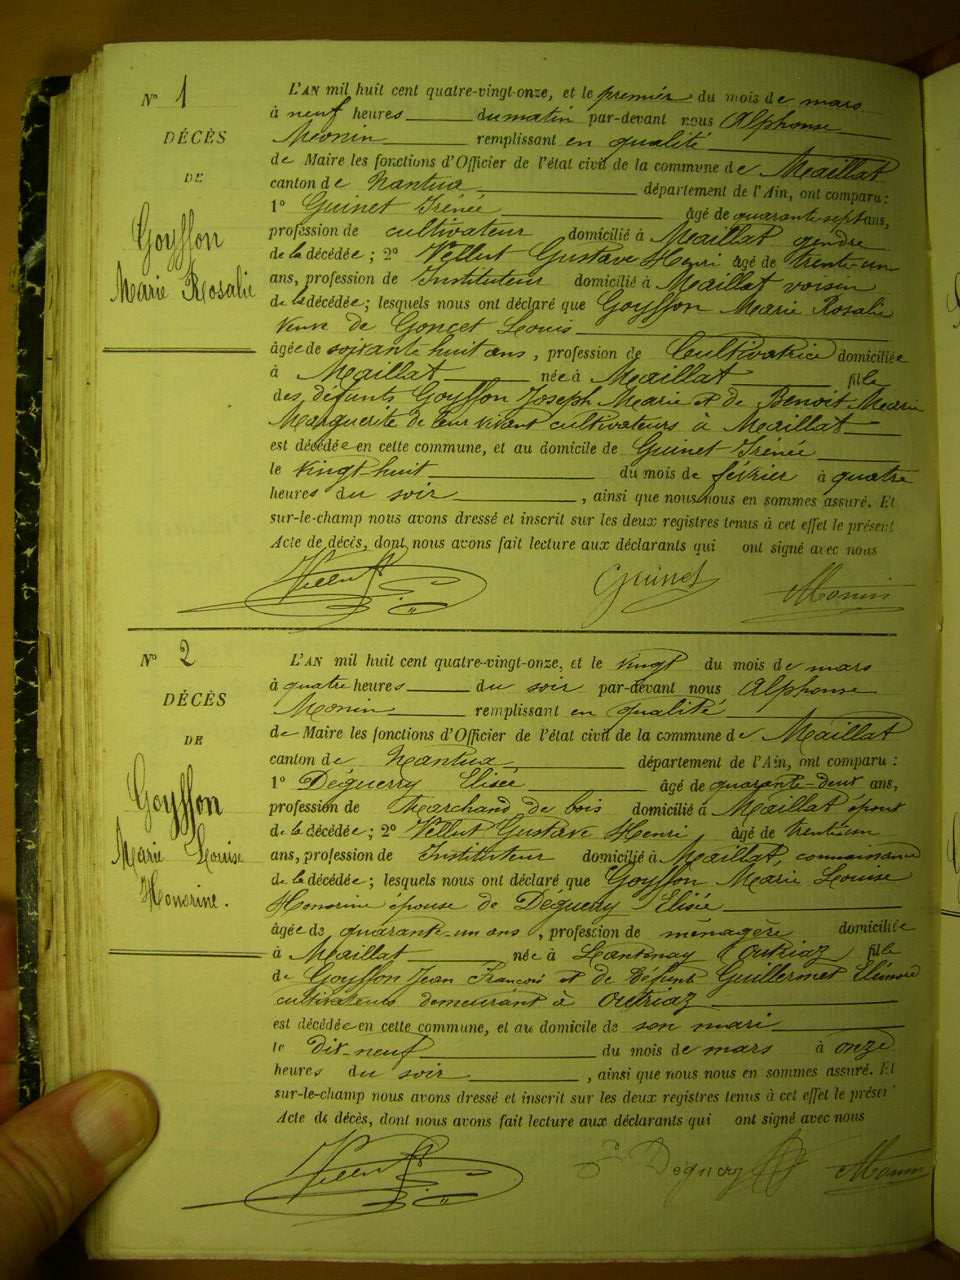 N° 1
DÉCÈS
DE
Goyffon
Marie Rosalie
L'AN mil huit cent quatre-vingt-onze, et le premier du mois de mars
à neuf heures du matin par-devant nous Alphonse
Monin remplissant en qualité
de Maire les fonctions d'Officier de l'état civil de la commune de Maillat
canton de Nantua département de l'Ain, ont comparu :
1° Guinet Irénée âgé de quarante sept ans,
profession de cultivateur domicilié à Maillat gendre
de la décédée ; 2° Vellut Gustave Henri âgé de trente-un
ans, profession de Instituteur domicilié à Maillat voisin
de la décédée ; lesquels nous ont déclaré que Goyffon Marie Rosalie
veuve de Goncet Louis
âgée de soixante huit ans, profession de Cultivatrice domiciliée
à Maillat née à Maillat fille
des défunts Goyffon Joseph Marie et de Benoit Marie
Marguerite de leur vivant cultivateurs à Maillat
est décédée en cette commune, et au domicile de Guinet Irénée
le vingt-huit du mois de février à quatre
heures du soir, ainsi que nous nous en sommes assuré. Et
sur-le-champ nous avons dressé et inscrit sur les deux registres tenus à cet effet le présent
Acte de décès, dont nous avons fait lecture aux déclarants qui ont signé avec nous
Vellut Guinet Monin
N° 2
DÉCÈS
DE
Goyffon
Marie Louise
Honorine.
L'AN mil huit cent quatre-vingt-onze, et le vingt du mois de mars
à quatre heures du soir par-devant nous Alphonse
Monin remplissant en qualité
de Maire les fonctions d'Officier de l'état civil de la commune de Maillat
canton de Nantua département de l'Ain, ont comparu :
1° Déguerry Elisée âgé de quarante-deux ans,
profession de Marchand de bois domicilié à Maillat époux
de la décédée ; 2° Vellut Gustave Henri âgé de trente-un
ans, profession de Instituteur domicilié à Maillat, connaissance
de la décédée ; lesquels nous ont déclaré que Goyffon Marie Louise
Honorine épouse de Déguerry Elisée
âgée de quarante-un ans, profession de ménagère domiciliée
à Maillat née à Lantenay Outriaz fille
de Goyffon Jean François et de Défunte Guillermet
cultivateurs demeurant à Outriaz
est décédée en cette commune, et au domicile de son mari
le dix-neuf du mois de mars à onze
heures du soir, ainsi que nous nous en sommes assuré. Et
sur-le-champ nous avons dressé et inscrit sur les deux registres tenus à cet effet le présent
Acte de décès, dont nous avons fait lecture aux déclarants qui ont signé avec nous
Vellut Déguerry Monin